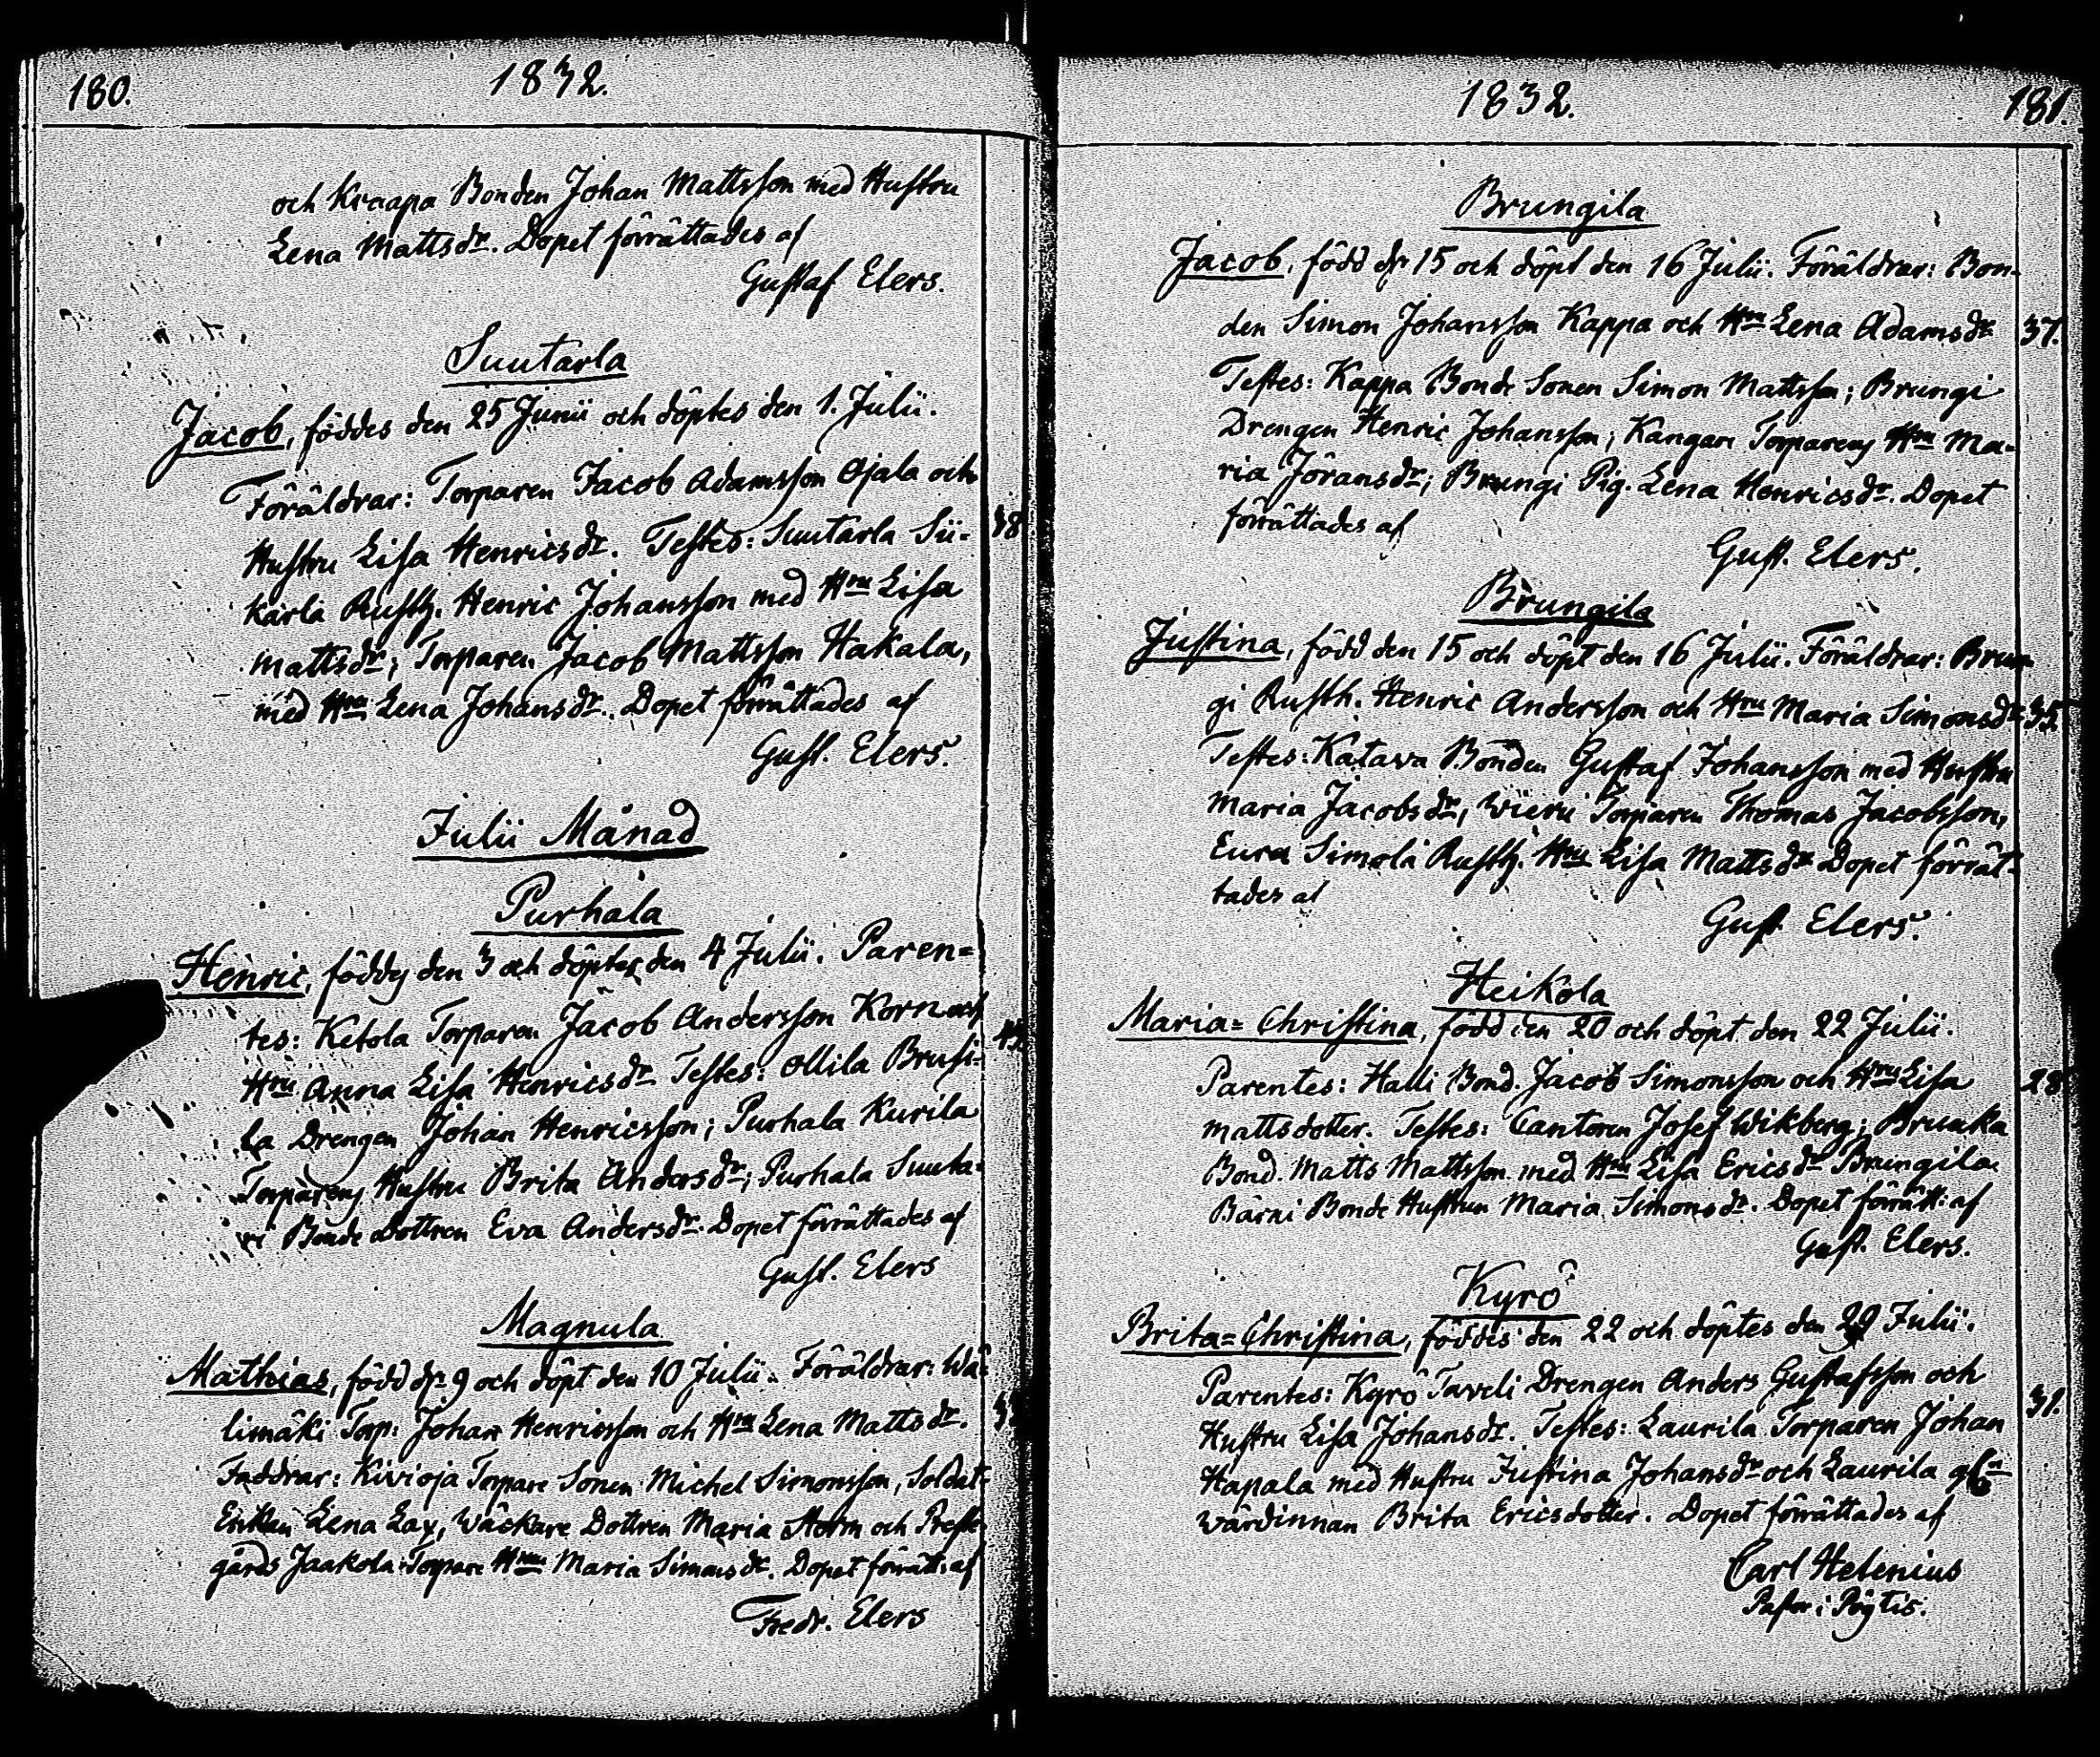 180.
1832.
och Kraapa Bonden Johan Mattsson med Hustru
Lena Mattsdr. Dopet förrättades af
Gustaf Elers.
Suutarla
Jacob, föddes den 25 Junii och döptes den 1. Julii.
Föräldrar: Torparen Jacob Adamsson Ojala och
Hustru Lisa Henricsdr. Testes: Suutarla Sii-
38
karla Rusth. Henric Johansson med Hru Lisa
Mattsdr; Torparen Jacob Mattsson Hakala,
med Hru Lena Johansdr. Dopet förrättades af
Gust. Elers.
Julii Månad
Purhala
Henric, föddes den 3 och döptes den 4 Julii. Paren-
tes: Ketola Torparen Jacob Andersson Korn och
Hru Anna Lisa Henricsdr Testes: Ollila Brusi-
la Drengen Johan Henricsson; Purhala Kurila
Torparens Hustru Brita Andersdr; Purhala Suuta-
ri Bonde Dottren Eva Andersdr. Dopet förrättades af
Gust. Elers
Magnula
Mathias, född dn 9 och döpt den 10 Julii. Föräldrar: Wä-
limäki Torp: Johan Henricsson och Hru Lena Mattsdr.
Faddrar: Kivioja Torpare Sonen Michel Simonsson, Soldat-
Enkan Lena Lax, Wäckare Dottren Maria Storm och Prest-
gårds Jaakola Torpare Hru Maria Simonsdr. Dopet förrätt: af
Fredr. Elers
1832.
181.
Brungila
Jacob, född dn 15 och döpt den 16 Julii. Föräldrar: Bon-
den Simon Johansson Kappa och Hru Lena Adamsdr
37.
Testes: Kappa Bonde Sonen Simon Mattsson; Brungi
Drengen Henric Johansson; Kangare Torparens Hru Ma-
ria Jöransdr; Brungi Pig. Lena Henricsdr. Dopet
förrättades af
Gust. Elers.
Brungila
Justina, född den 15 och döpt den 16 Julii. Föräldrar: Brun-
gi Rusth. Henric Andersson och Hru Maria Simonsdr
35
Testes: Katava Bonden Gustaf Johansson med Hustru
Maria Jacobsdr, Wieru Torparen Thomas Jacobsson,
Eura Simola Rusth. Hru Lisa Mattsdr Dopet förrät-
tades af
Gust. Elers.
Heikola
Maria=Christina, född den 20 och döpt den 22 Julii.
Parentes: Halli Bond. Jacob Simonsson och Hru Lisa
28
Mattsdotter. Testes: Cantoren Josef Wikberg; Bruuka
Bond. Matts Mattsson med Hru Lisa Ericsdr Brungila
Bärni Bonde Hustrun Maria Simonsdr. Dopet förrätt: af
Gust. Elers.
Kyrö
Brita=Christina, föddes den 22 och döptes den 29 Julii.
Parentes: Kyrö Taveli Drengen Anders Gustafsson och
31.
Hustru Lisa Johansdr. Testes: Laurila Torparen Johan
Hapala med Hustru Justina Johansdr och Laurila
Wärdinnan Brita Ericsdotter. Dopet förrättades af
Carl Helenius
Pastor i Pöytis.